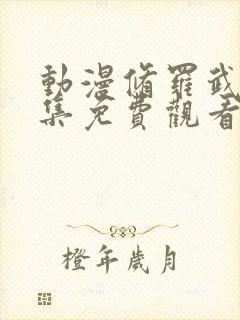 動漫脩羅武
集免費觀看
橙年歲月